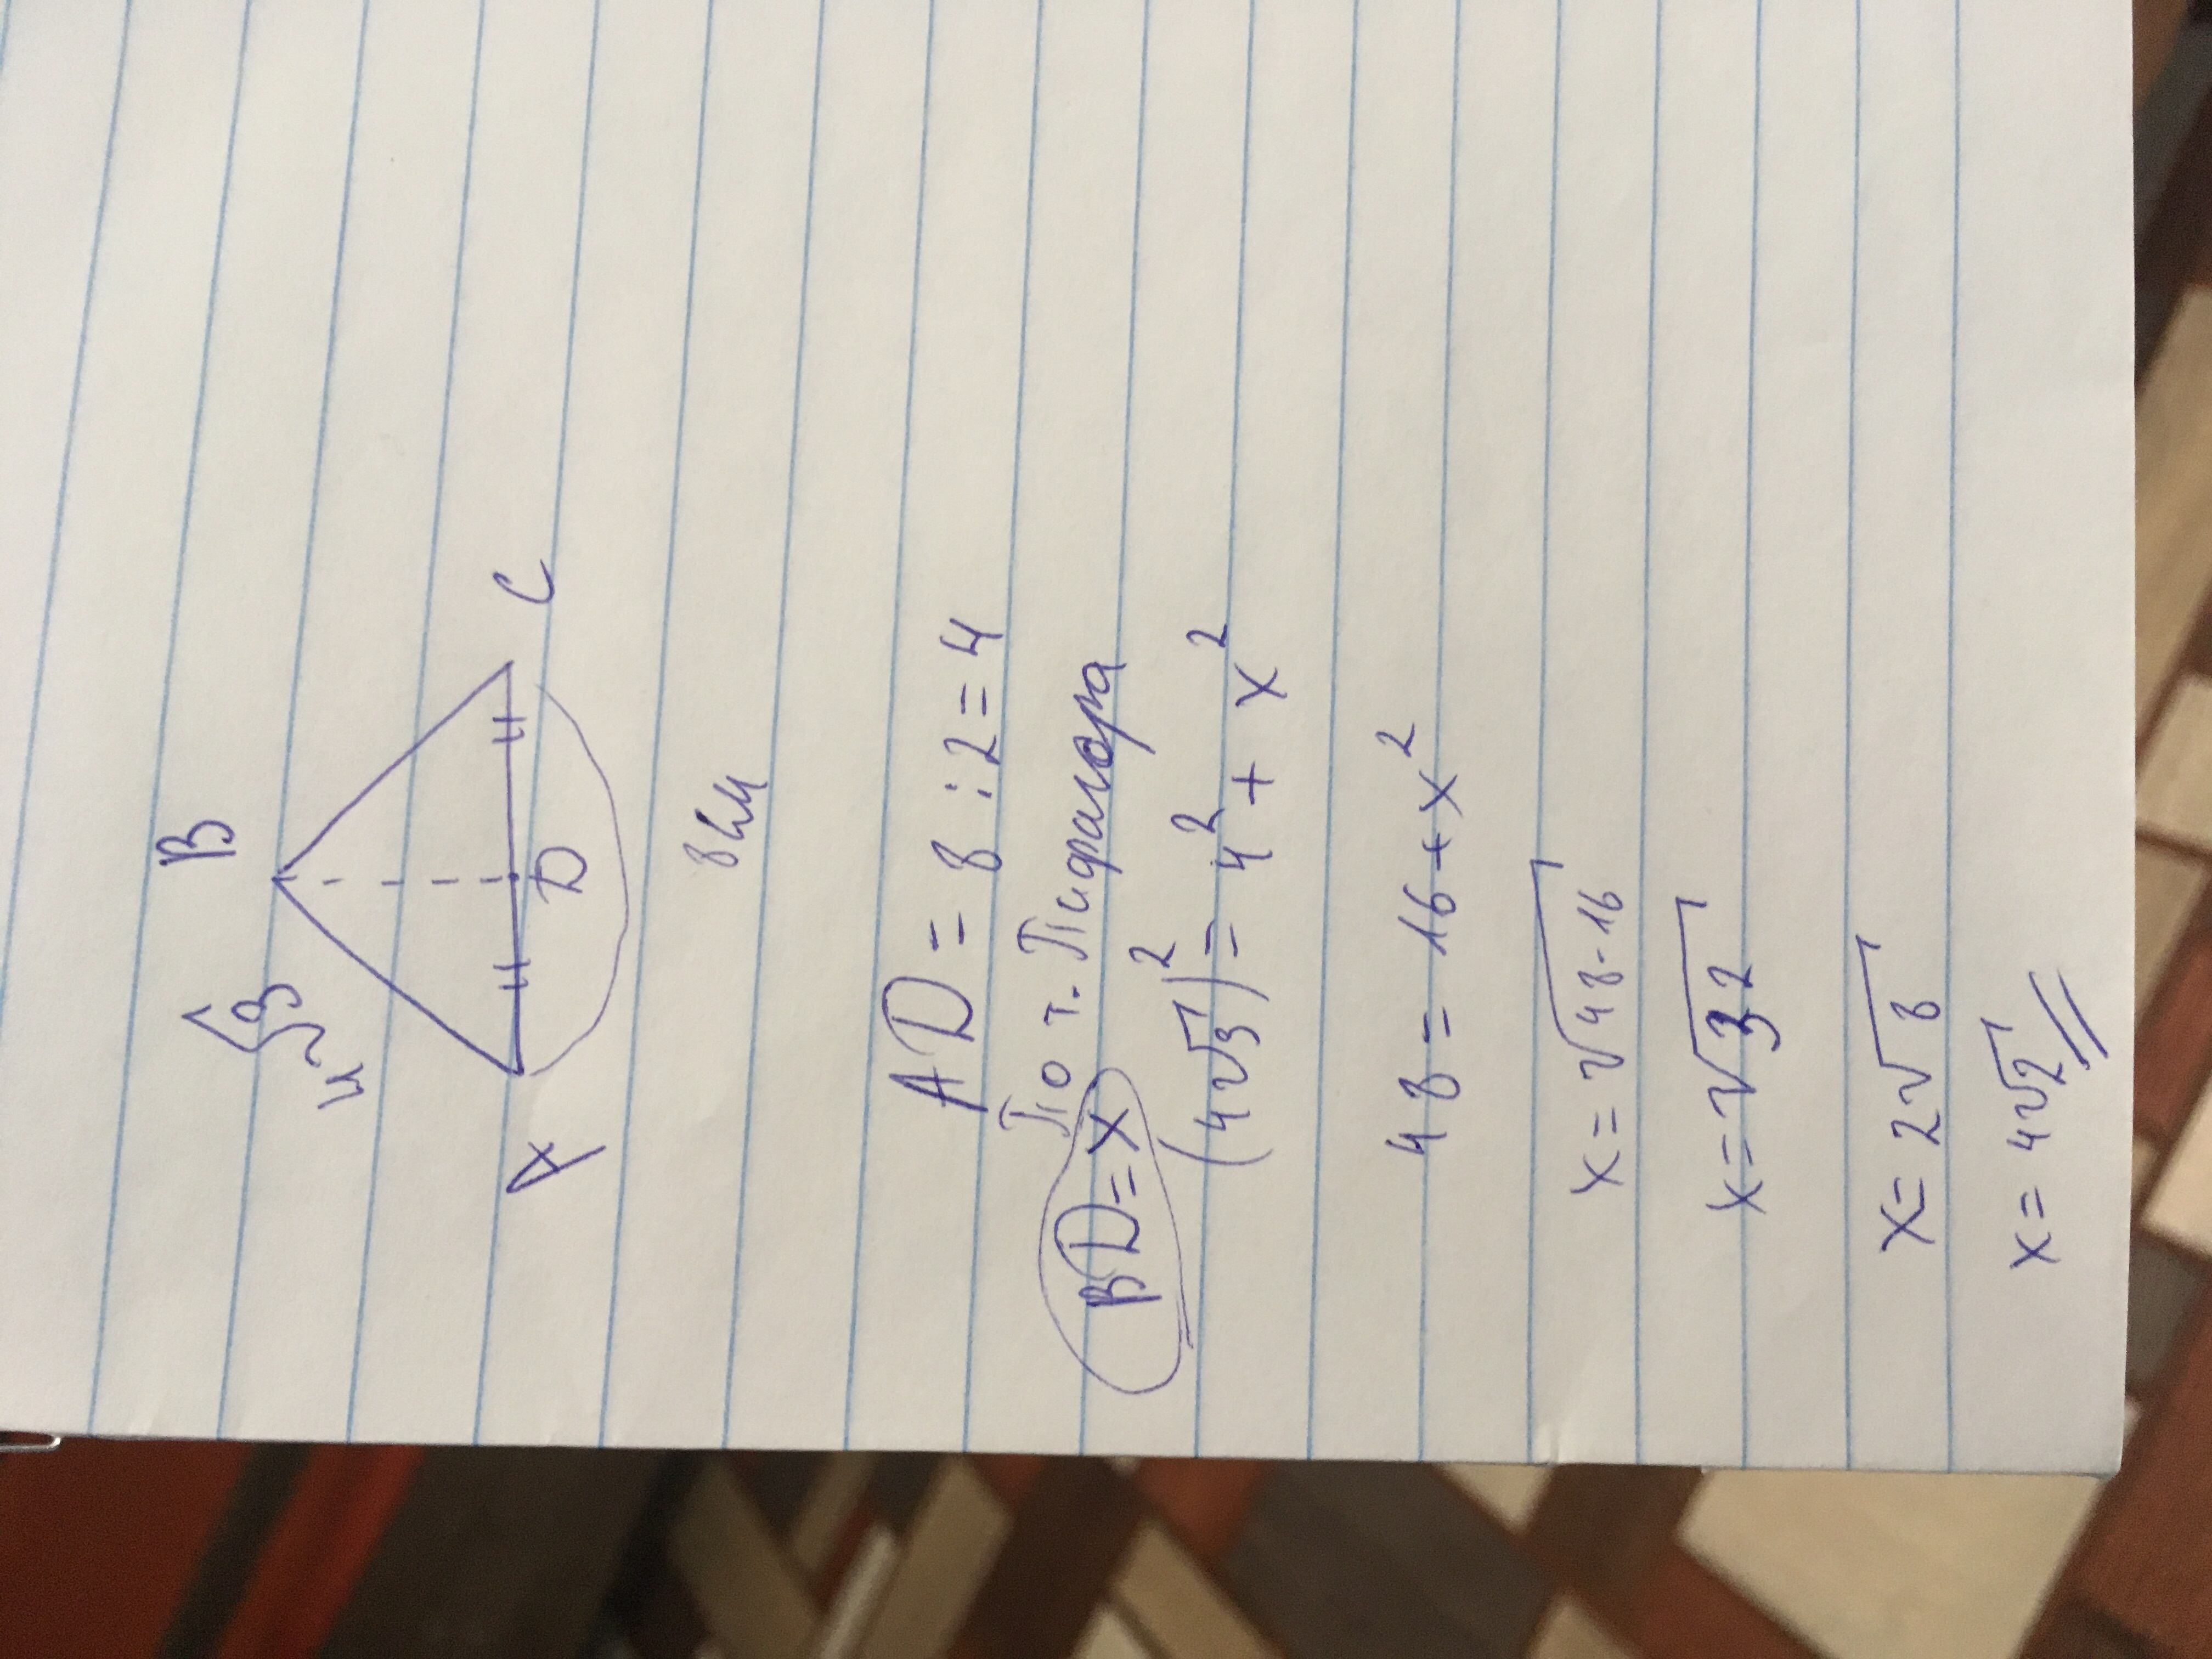 B
4√3
A D C
8см
AD = 8 : 2 = 4
По т. Пифагора
BD = x
(4√3)² = 4² + x²
48 = 16 + x²
x = √48-16
x = √32
x = 2√8
x = 4√2